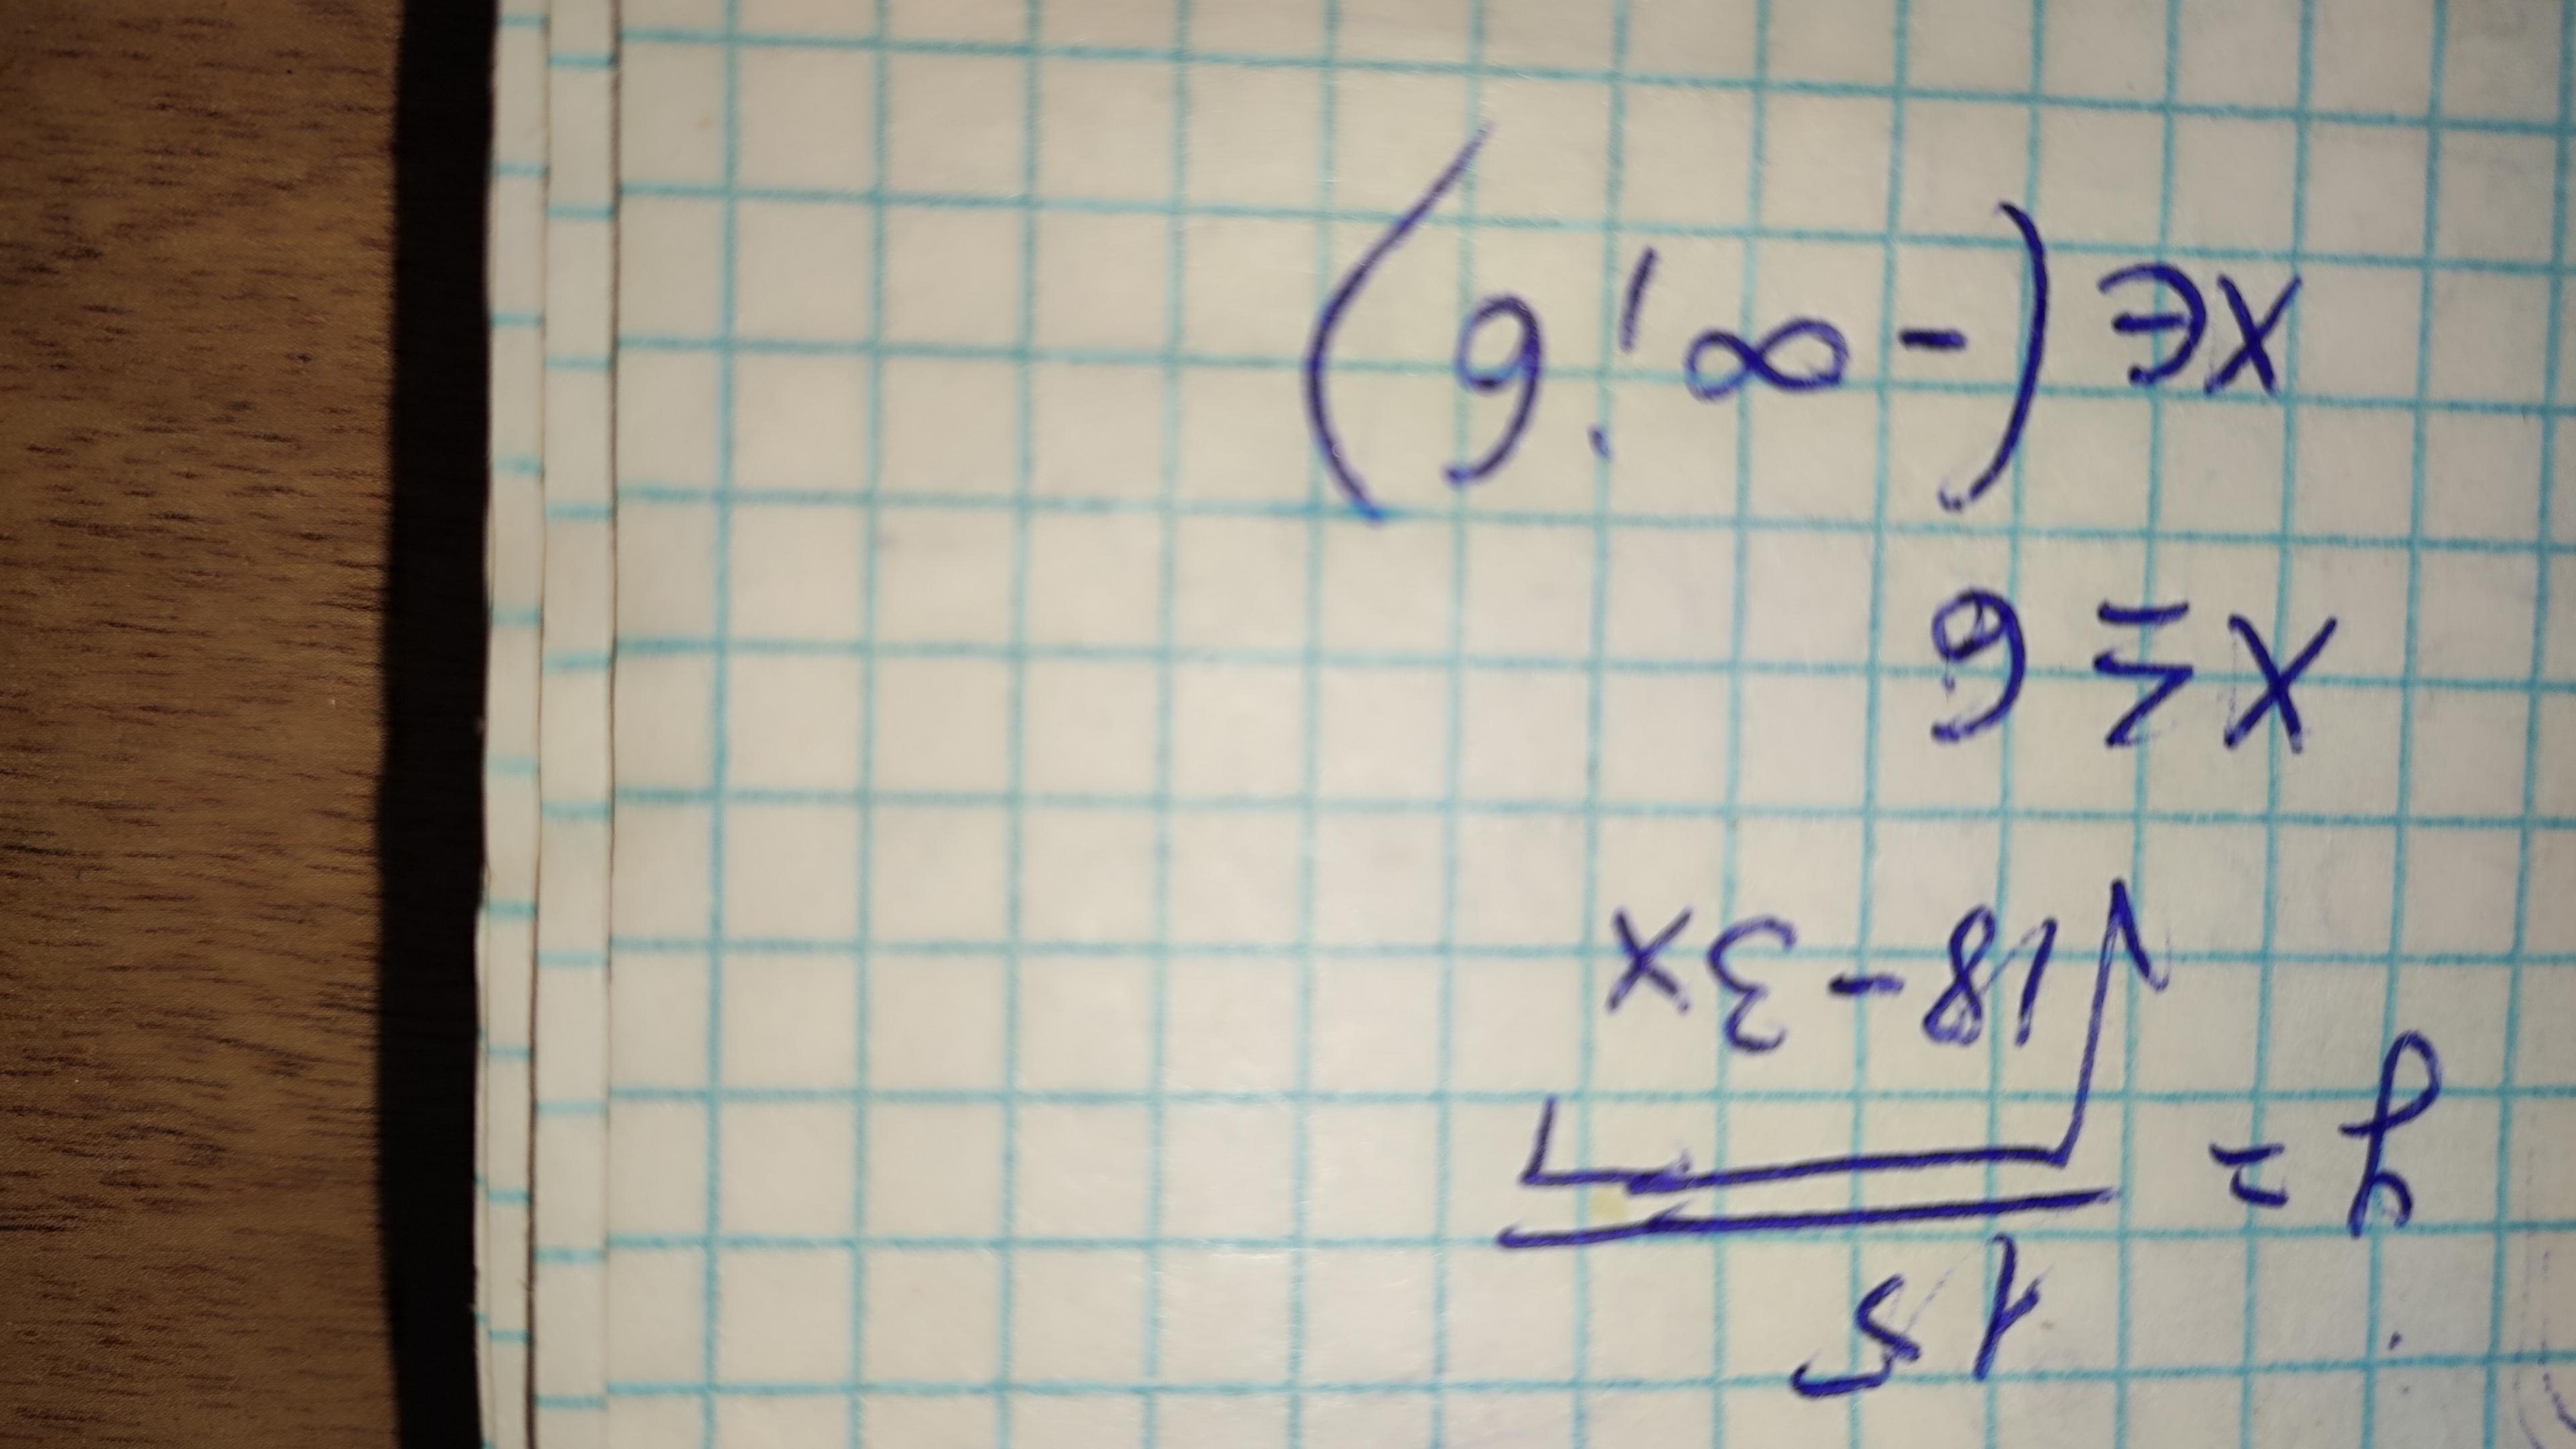 15
y =
√18-3x
x ≤ 6
x∈(-∞;6)